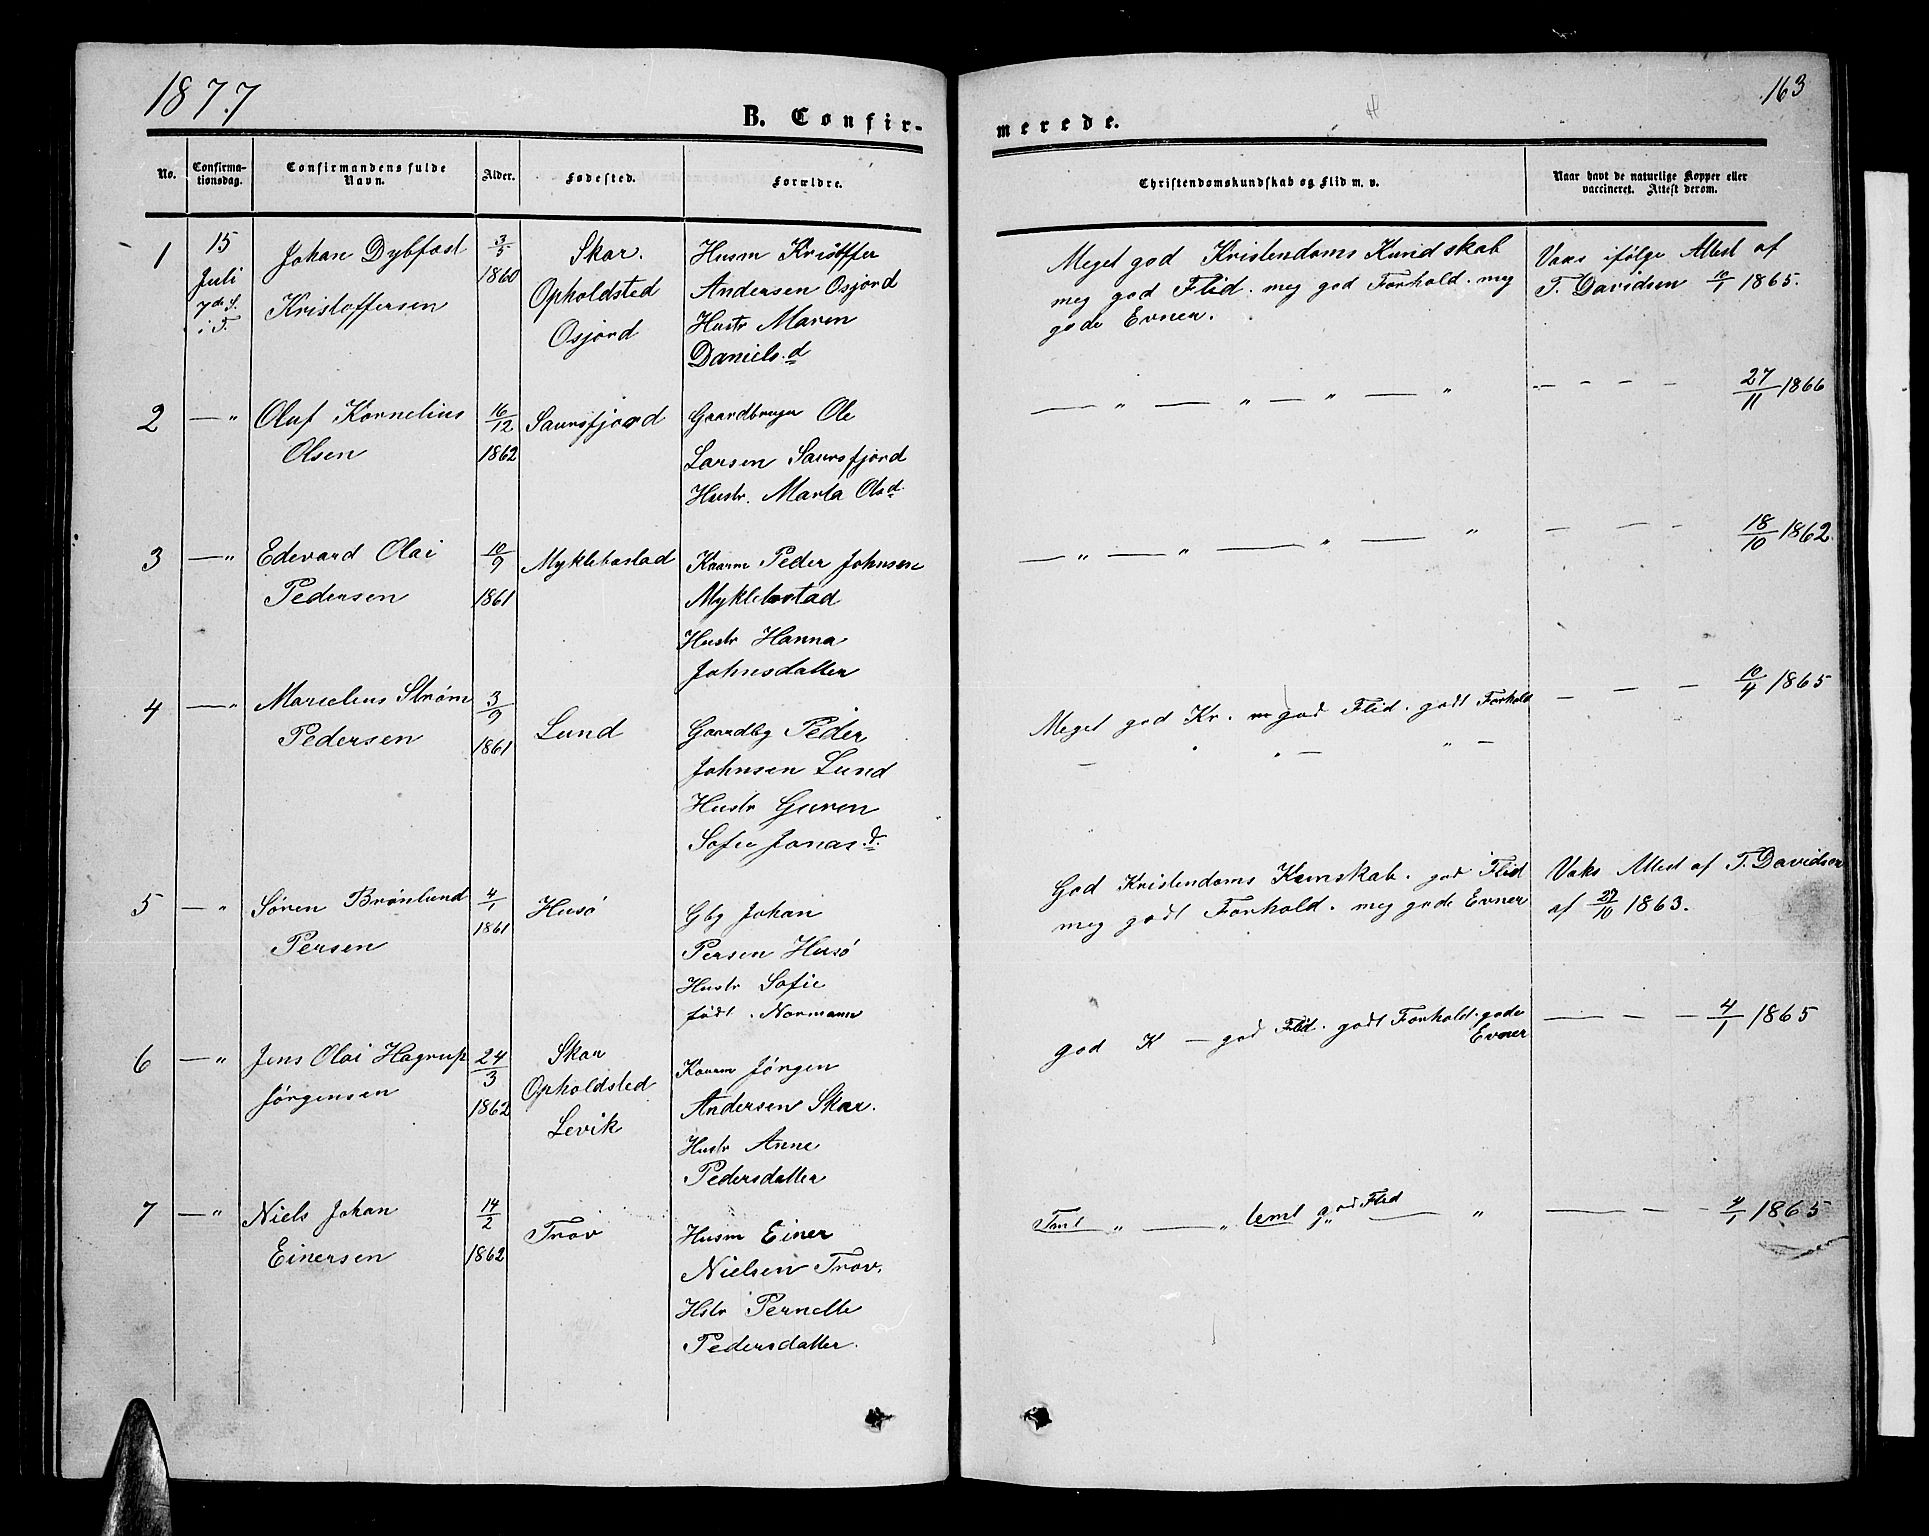 1877
163
B. Confir-
merede.
No.
Confirma-
tionsdag.
Confirmandens fulde
Navn.
Alder.
Fødested.
Forældre.
Christendomskundskab og Flid m. v.
Naar havt de naturlige Kopper eller
vaccineret. Attest derom.
1
15
Juli
7de S.
i T.
Johan Dybfast
Kristoffersen
3/5
1860
Skar.
Opholdsted
Osjord
Husm Kristoffer
Andersen Osjord
Hustr Maren
Daniels.d
Meget god Kristendoms Kundskab
meg god Flid. meg god Forhold. meg
gode Evner.
Vaks ifølge Attest af
T. Davidsen 10/1 1865.
2
— "
Oluf Kornelius
Olsen
16/12
1862
Saursfjord
Gaardbruger Ole
Larsen Saursfjord
Hustr. Marta Olsd.
— " — " — " — "
— — — — 27/11 1866
3
— "
Edevard Olai
Pedersen
10/9
1861
Myklebostad
Kaarm Peder Johnsen
Myklebostad
Hustr Hanna
Johnsdatter
— " — " — " — "
— — — 18/10 1862.
4
— "
Marselius Strøm
Pedersen
3/9
1861
Lund
Gaardbg Peder
Johnsen Lund
Hustr Guren
Sofie Jonas.d.
Meget god Kr. m god Flid. godt Forhold
— " " — " —
— — — 10/4 1865
5
— "
Søren Brønlund
Persen
4/1
1861
Husø
Gbg Johan
Persen Husø
Hustr Sofie
født. Normann
God Kristendoms Kunskab. god Flid
meg godt Forhold. meg gode Evner
Vaks Attest af T. Davidsen
af 27/10 1863.
6
— "
Jens Olai Hagrup
Jørgensen
24/3
1862
Skar
Opholdsted
Levik
Kaarm Jørgen
Andersen Skar.
Hustr Anne
Pedersdatter
god K — god Flid. godt Forhold. gode
Evner
— — — 4/1 1865
7
— "
Niels Johan
Einersen
14/2
1862
Trøv
Husm Einer
Nielsen Trøv.
Hstr Pernelle
Pedersdatter.
" — " teml god Flid — "
— — — 4/1 1865